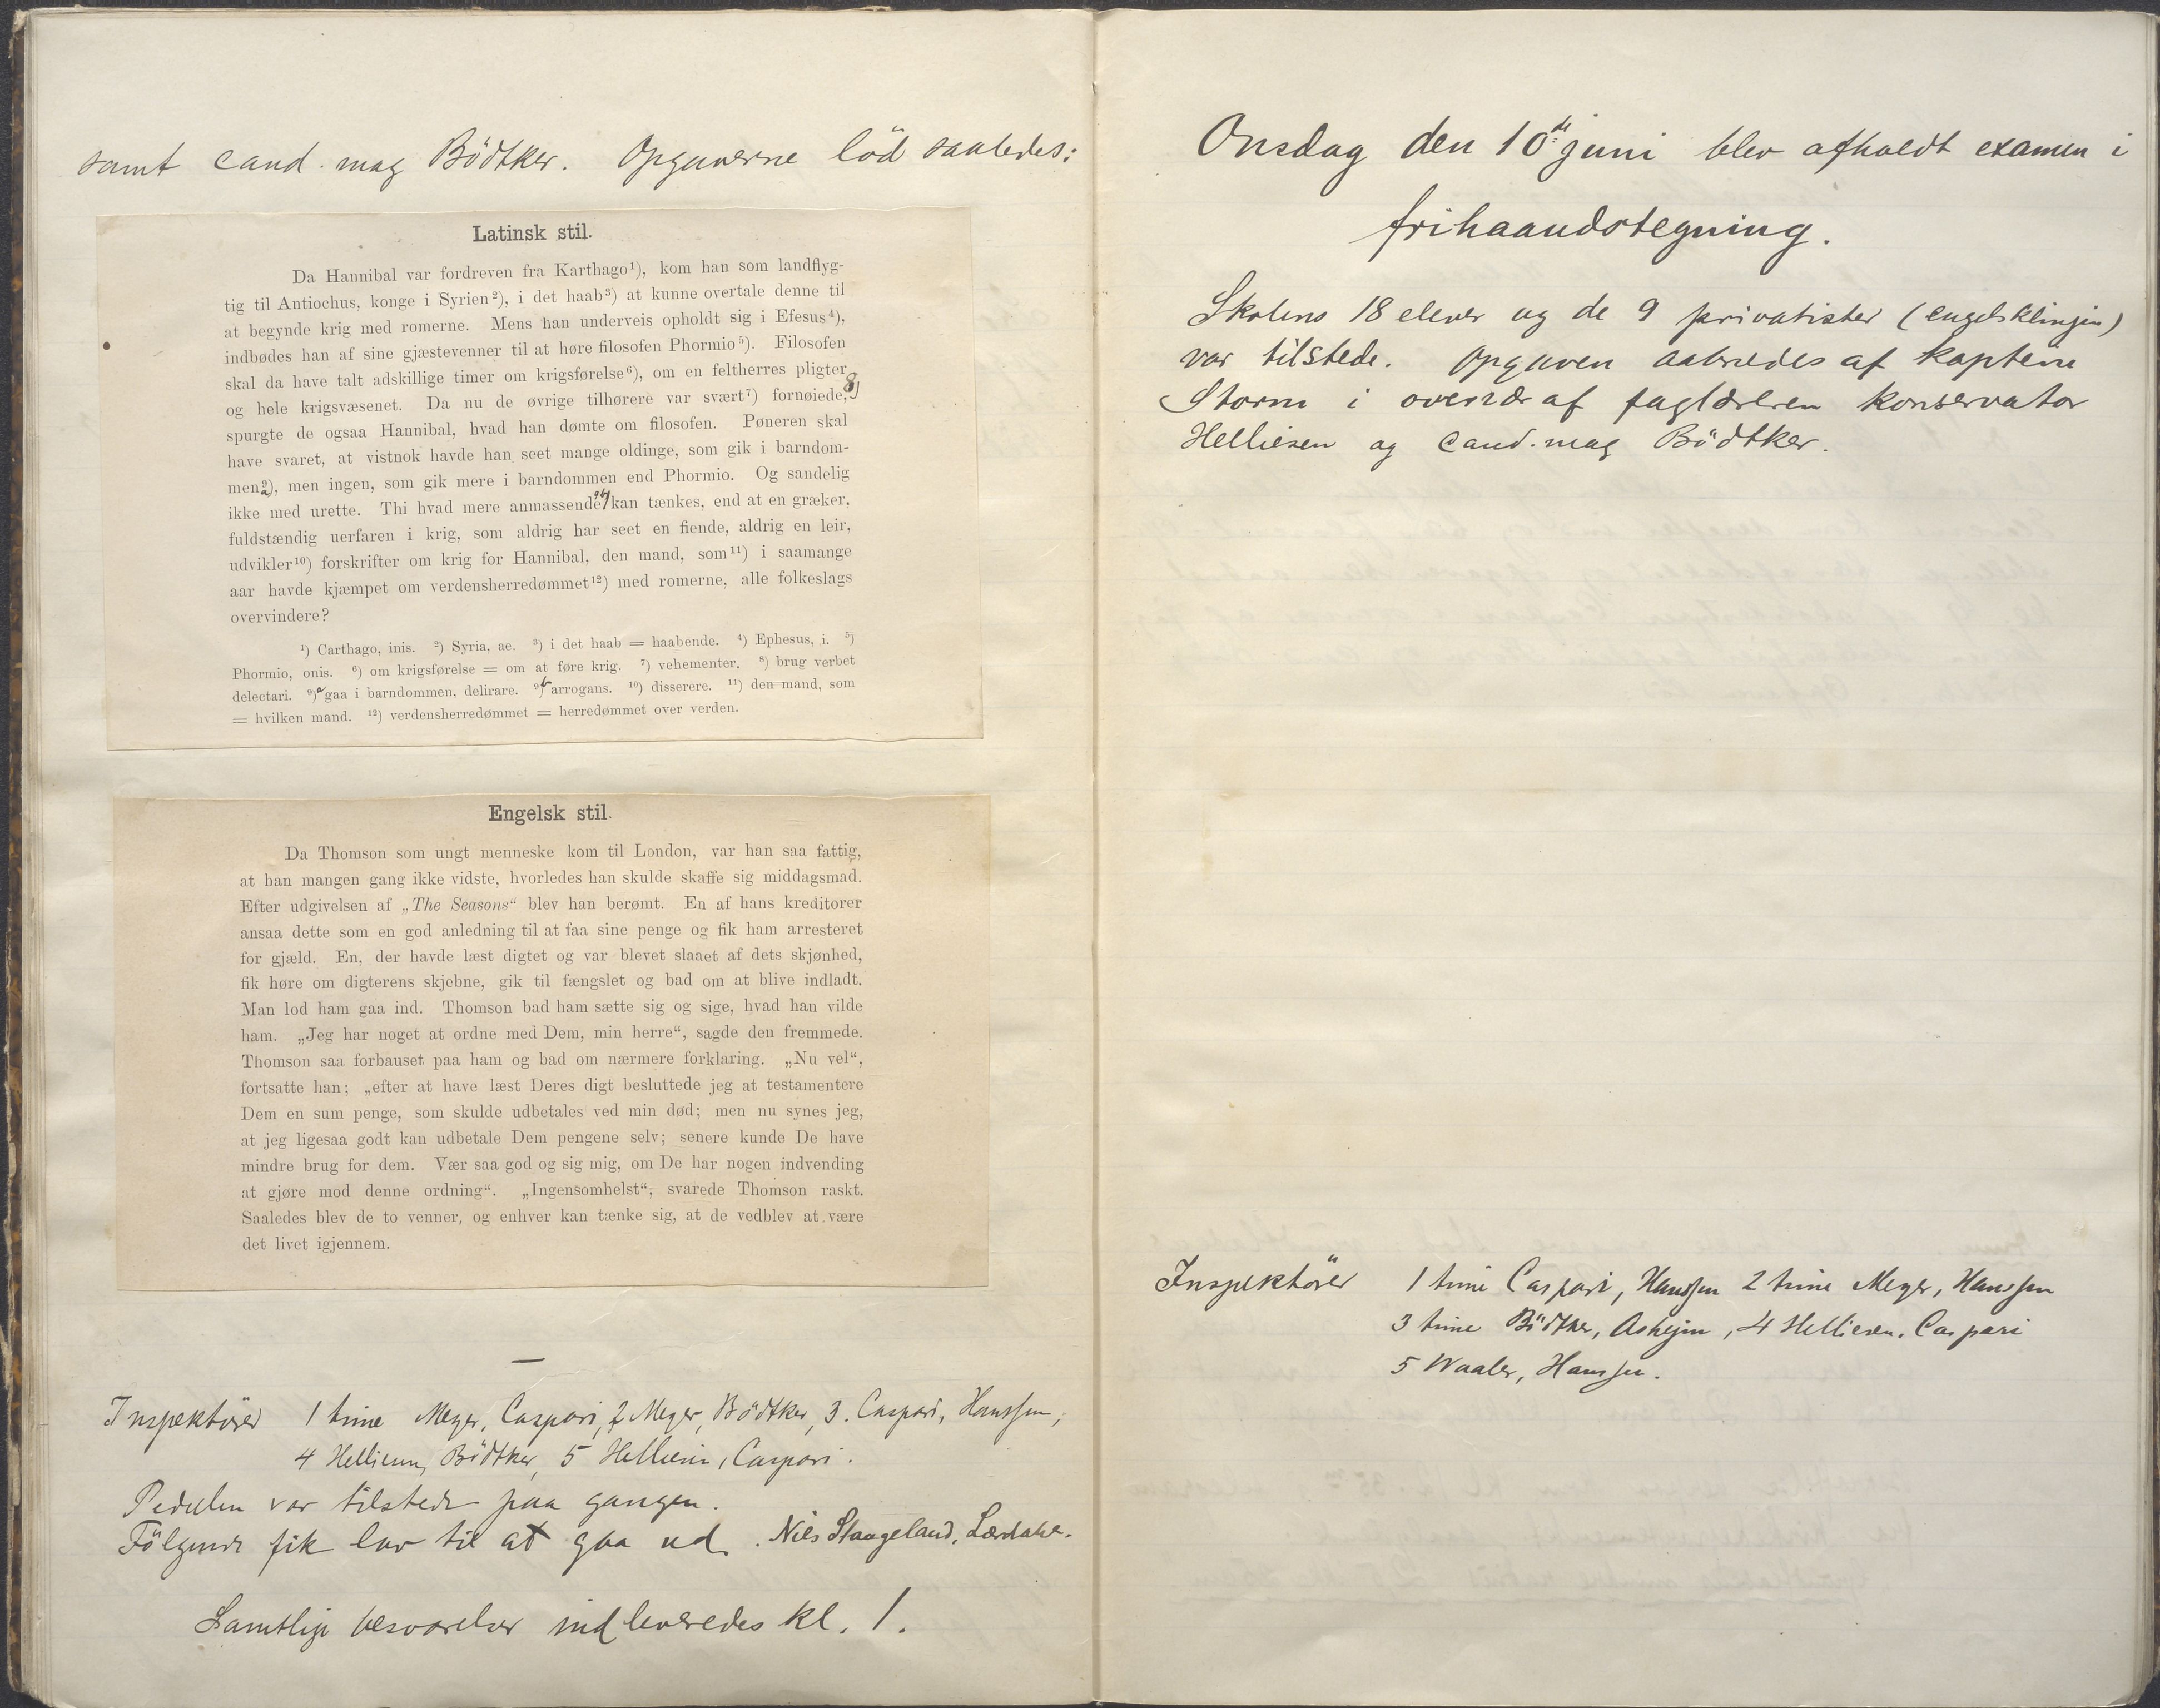 samt cand. mag Bödtker. Opgaverne löd saaledes:
Latinsk stil.
Da Hannibal var fordreven fra Karthago¹), kom han som landflyg-
tig til Antiochus, konge i Syrien²), i det haab³) at kunne overtale denne til
at begynde krig med romerne. Mens han underveis opholdt sig i Efesus⁴),
indbødes han af sine gjæstevenner til at høre filosofen Phormio⁵). Filosofen
skal da have talt adskillige timer om krigsførelse⁶), om en feltherres pligter
og hele krigsvæsenet. Da nu de øvrige tilhørere var svært⁷) fornøiede,8)
spurgte de ogsaa Hannibal, hvad han dømte om filosofen. Pøneren skal
have svaret, at vistnok havde han seet mange oldinge, som gik i barndom-
men9a), men ingen, som gik mere i barndommen end Phormio. Og sandelig
ikke med urette. Thi hvad mere anmassende9b) kan tænkes, end at en græker,
fuldstændig uerfaren i krig, som aldrig har seet en fiende, aldrig en leir,
udvikler¹⁰) forskrifter om krig for Hannibal, den mand, som¹¹) i saamange
aar havde kjæmpet om verdensherredømmet¹²) med romerne, alle folkeslags
overvindere?
¹) Carthago, inis. ²) Syria, ae. ³) i det haab = haabende. ⁴) Ephesus, i. ⁵)
Phormio, onis. ⁶) om krigsførelse = om at føre krig. ⁷) vehementer. ⁸) brug verbet
delectari. ⁹)a gaa i barndommen, delirare. ⁹)b arrogans. ¹⁰) disserere. ¹¹) den mand, som
= hvilken mand. ¹²) verdensherredømmet = herredømmet over verden.
Engelsk stil.
Da Thomson som ungt menneske kom til London, var han saa fattig,
at han mangen gang ikke vidste, hvorledes han skulde skaffe sig middagsmad.
Efter udgivelsen af „The Seasons“ blev han berømt. En af hans kreditorer
ansaa dette som en god anledning til at faa sine penge og fik ham arresteret
for gjæld. En, der havde læst digtet og var blevet slaaet af dets skjønhed,
fik høre om digterens skjebne, gik til fængslet og bad om at blive indladt.
Man lod ham gaa ind. Thomson bad ham sætte sig og sige, hvad han vilde
ham. „Jeg har noget at ordne med Dem, min herre“, sagde den fremmede.
Thomson saa forbauset paa ham og bad om nærmere forklaring. „Nu vel“,
fortsatte han; „efter at have læst Deres digt besluttede jeg at testamentere
Dem en sum penge, som skulde udbetales ved min død; men nu synes jeg,
at jeg ligesaa godt kan udbetale Dem pengene selv; senere kunde De have
mindre brug for dem. Vær saa god og sig mig, om De har nogen indvending
at gjøre mod denne ordning“. „Ingensomhelst“, svarede Thomson raskt.
Saaledes blev de to venner, og enhver kan tænke sig, at de vedblev at være
det livet igjennem.
Inspektörer 1 time Meyer, Caspari, 2 Meyer, Bödtker, 3. Caspari, Hanssen,
4 Helliesen, Bödtker, 5 Helliesen, Caspari.
Pedellen var tilstede paa gangen.
Fölgende fik lov til at gaa ud. Niels Staageland, Lærdahl.
Samtlige besvarelser indleveredes kl. 1.
Onsdag den 10de juni blev afholdt examen i
frihaandstegning.
Skolens 18 elever og de 9 privatister (engelsklinjen)
var tilstede. Opgaven aabnedes af kaptein
Storm i overvær af faglæreren konservator
Helliesen og Cand. mag Bödtker.
Inspektörer 1 time Caspari, Hanssen 2 time Meyer, Hanssen
3 time Bödtker, 4 Helliesen, Caspari
5 Waaler, Hanssen.